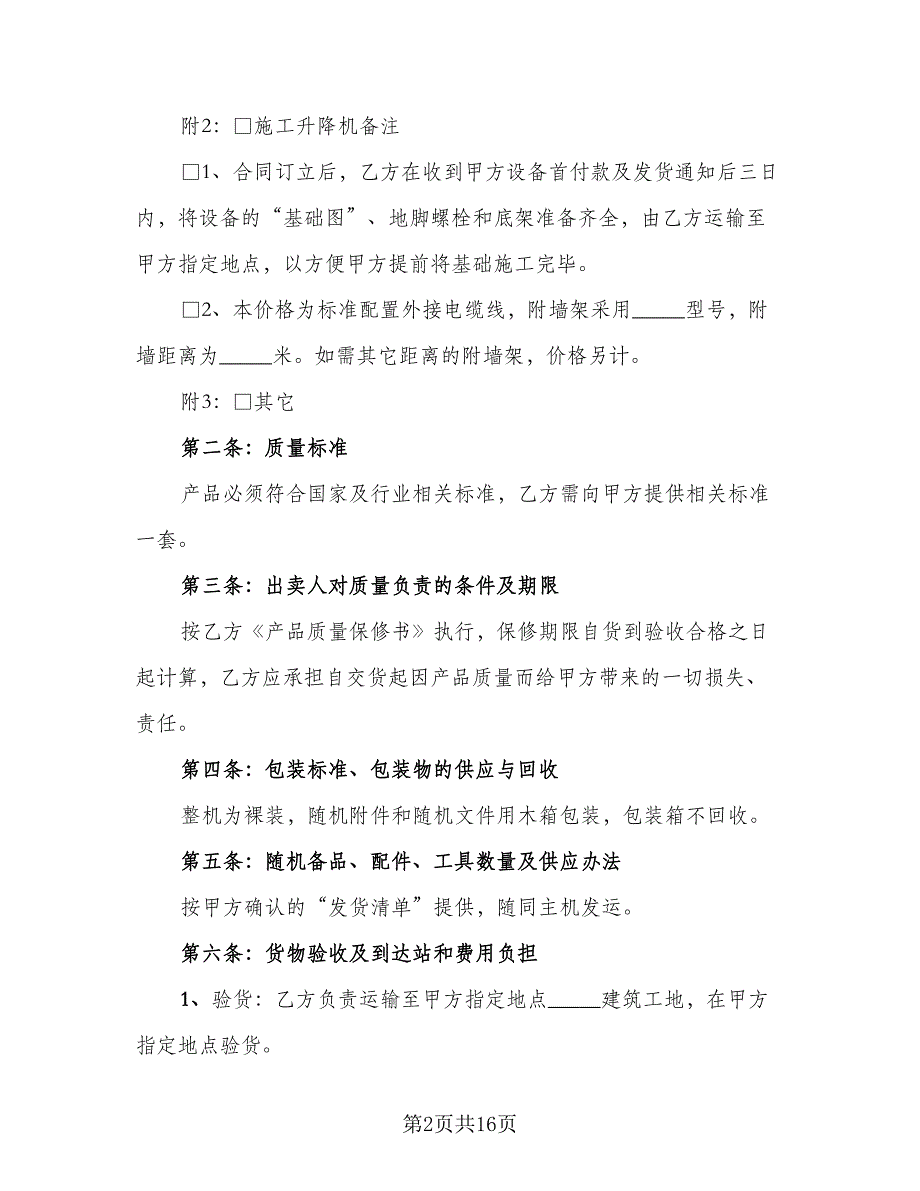 附2：□施工升降机备注
□1、合同订立后，乙方在收到甲方设备首付款及发货通知后三日
内，将设备的“基础图”、地脚螺栓和底架准备齐全，由乙方运输至
甲方指定地点，以方便甲方提前将基础施工完毕。
□2、本价格为标准配置外接电缆线，附墙架采用_____型号，附
墙距离为_____米。如需其它距离的附墙架，价格另计。
附3：□其它
第二条：质量标准
产品必须符合国家及行业相关标准，乙方需向甲方提供相关标准
一套。
第三条：出卖人对质量负责的条件及期限
按乙方《产品质量保修书》执行，保修期限自货到验收合格之日
起计算，乙方应承担自交货起因产品质量而给甲方带来的一切损失、
责任。
第四条：包装标准、包装物的供应与回收
整机为裸装，随机附件和随机文件用木箱包装，包装箱不回收。
第五条：随机备品、配件、工具数量及供应办法
按甲方确认的“发货清单”提供，随同主机发运。
第六条：货物验收及到达站和费用负担
1、验货：乙方负责运输至甲方指定地点_____建筑工地，在甲方
指定地点验货。
第2页共16页